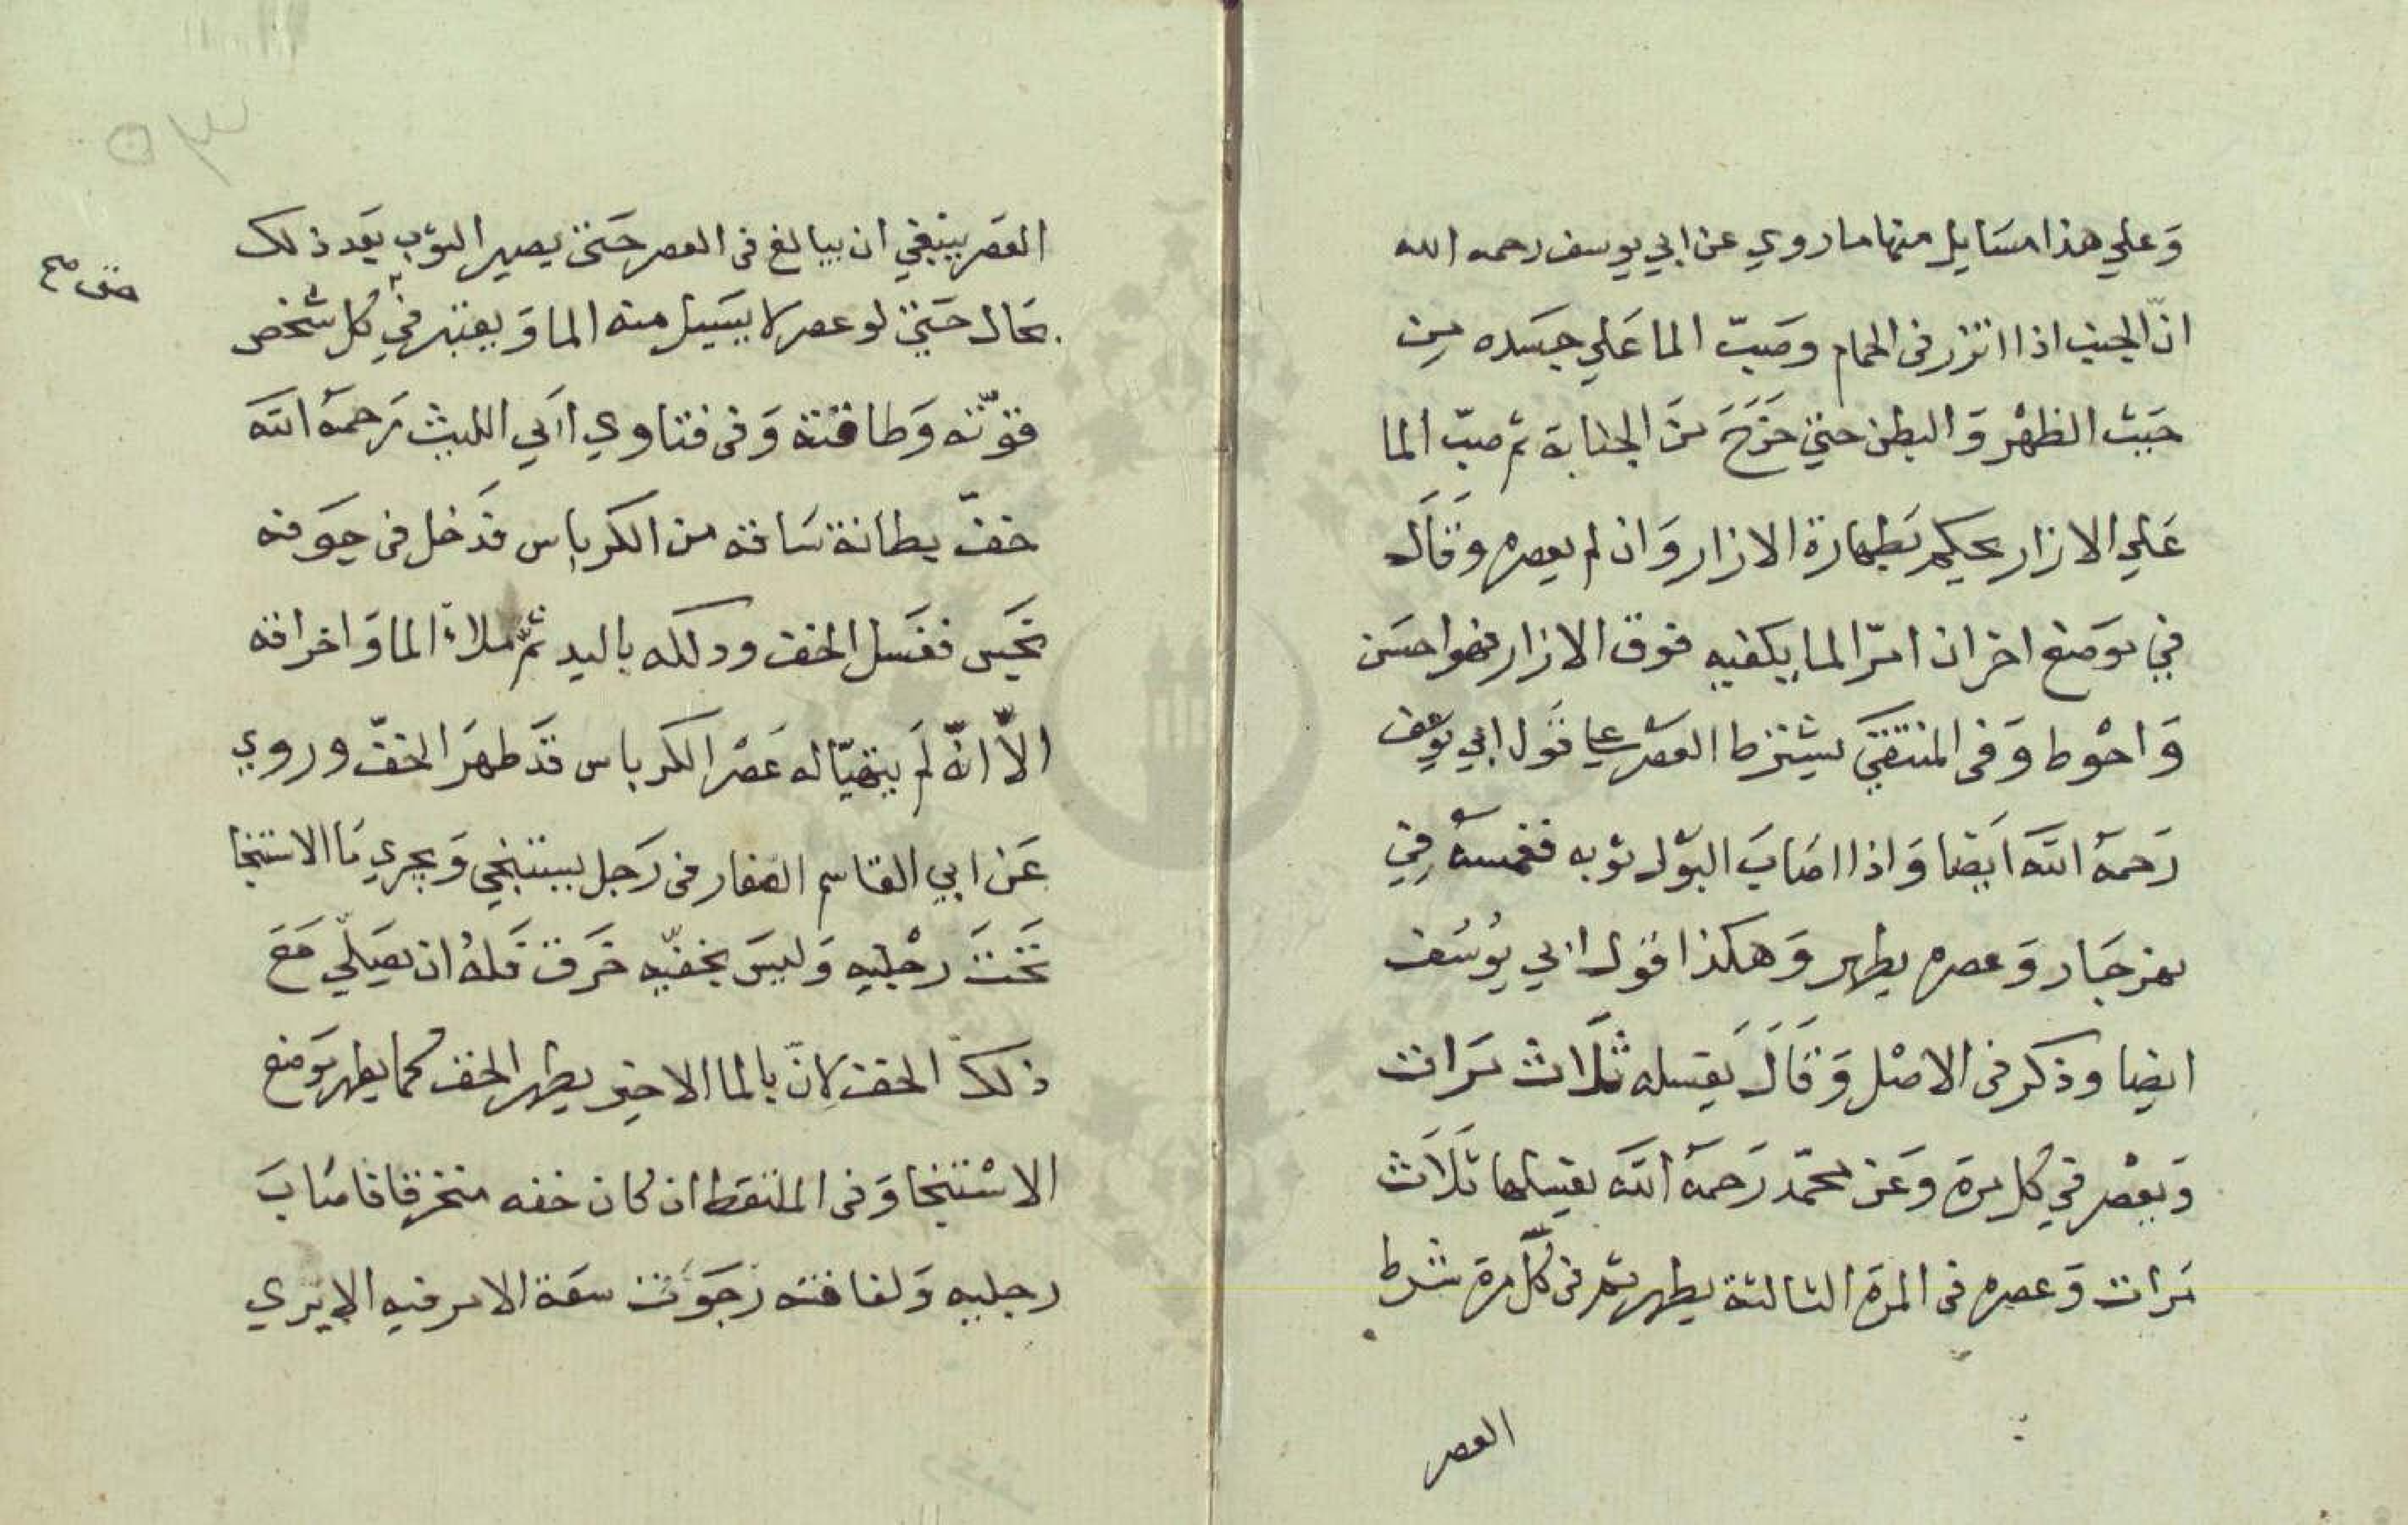 وَعلي هذا مسَايل منها ما روي عن ابي يوسف رحمه الله
انّ الجنب اذا اتزر فى الحمام وصَبّ الما عَلي جسَده مِن
حَيث الظهْر وَالبطن حتي خَرَجَ مَن الجنابة ثم صبّ الما
عَلي الازار يحكم بَطهارة الازار وَان لم يعصره وَقَالَ
في موَضع اخر ان امرّ الما بكفيه فوق الازار فهو احسَن
وَاحْوط وَفى المنتقيَ يشترط العصَر علي قَول ابي يوسف
رَحمهُ اللّه ايَضا وَاذا اصَابَ البوْل ثوْبه فغمسَهُ في
نهر جَار وَعصره يطهر وَهكذا قوْل ابي يُوسُف
ايضا وذكر فى الاصْل وَقَالَ يَغسله ثَلاث مَرات
وَيعْصر في كل مرة وَعَن محمّد رَحمهُ اللّه يغسلها ثلَاَث
مَرات وَعصره فى المرة الثالثة يطهر ثم فى كلّ مرة شرط
العصر
٥٣
العصَر ينبغي ان يبالغ فى العصر حَتىَ يصير الثوْب بعَد ذلك
بحَال حتَيَ لو عصر لا يسَيل منه الما وَيعتبر في كل شخص
صق صح
قوّته وَطاقته وَفى فتاوي اَبي الليث رَحمهُ اللّه
خفّ بطانة سَاقه من الكرباس فدَخل فى جوَفه
نجَس فغسَل الخف ودلكه باليد ثمّ ملاء الما وَاخراقه
الاّ انّه لَم يتهيّا له عَصْر الكرباس قدَ طهرَ الخفّ وروي
عَن ابي القاسم الصفار فى رَجل يستنجي وَيجري مَا الاستنجا
تَحَتَ رجْليه وَليسَ بخفّيه خَرَق فَلهُ ان يصَلّي مَعَ
ذلك الخف لانّ بالما الاخير يطهر الخف كما يطهر موَضع
الاسْتنجا وَفى الملتقط ان كان خفه منخرقا فاصَابَ
رجليه وَلفافته رَجوَت سعَة الامر فيه الا يري